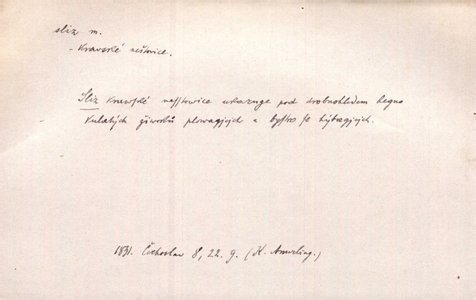 sliz m.
- Kravské neštovice.
Sliz Krawſké neſſtowice ukazuge pod drobnohledem hegno
kulatých žiwočků plowagjcých a byſtro ſe hýbagjcých.
1831. Čechoslav 8, 22. 9. (K. Amerling.)